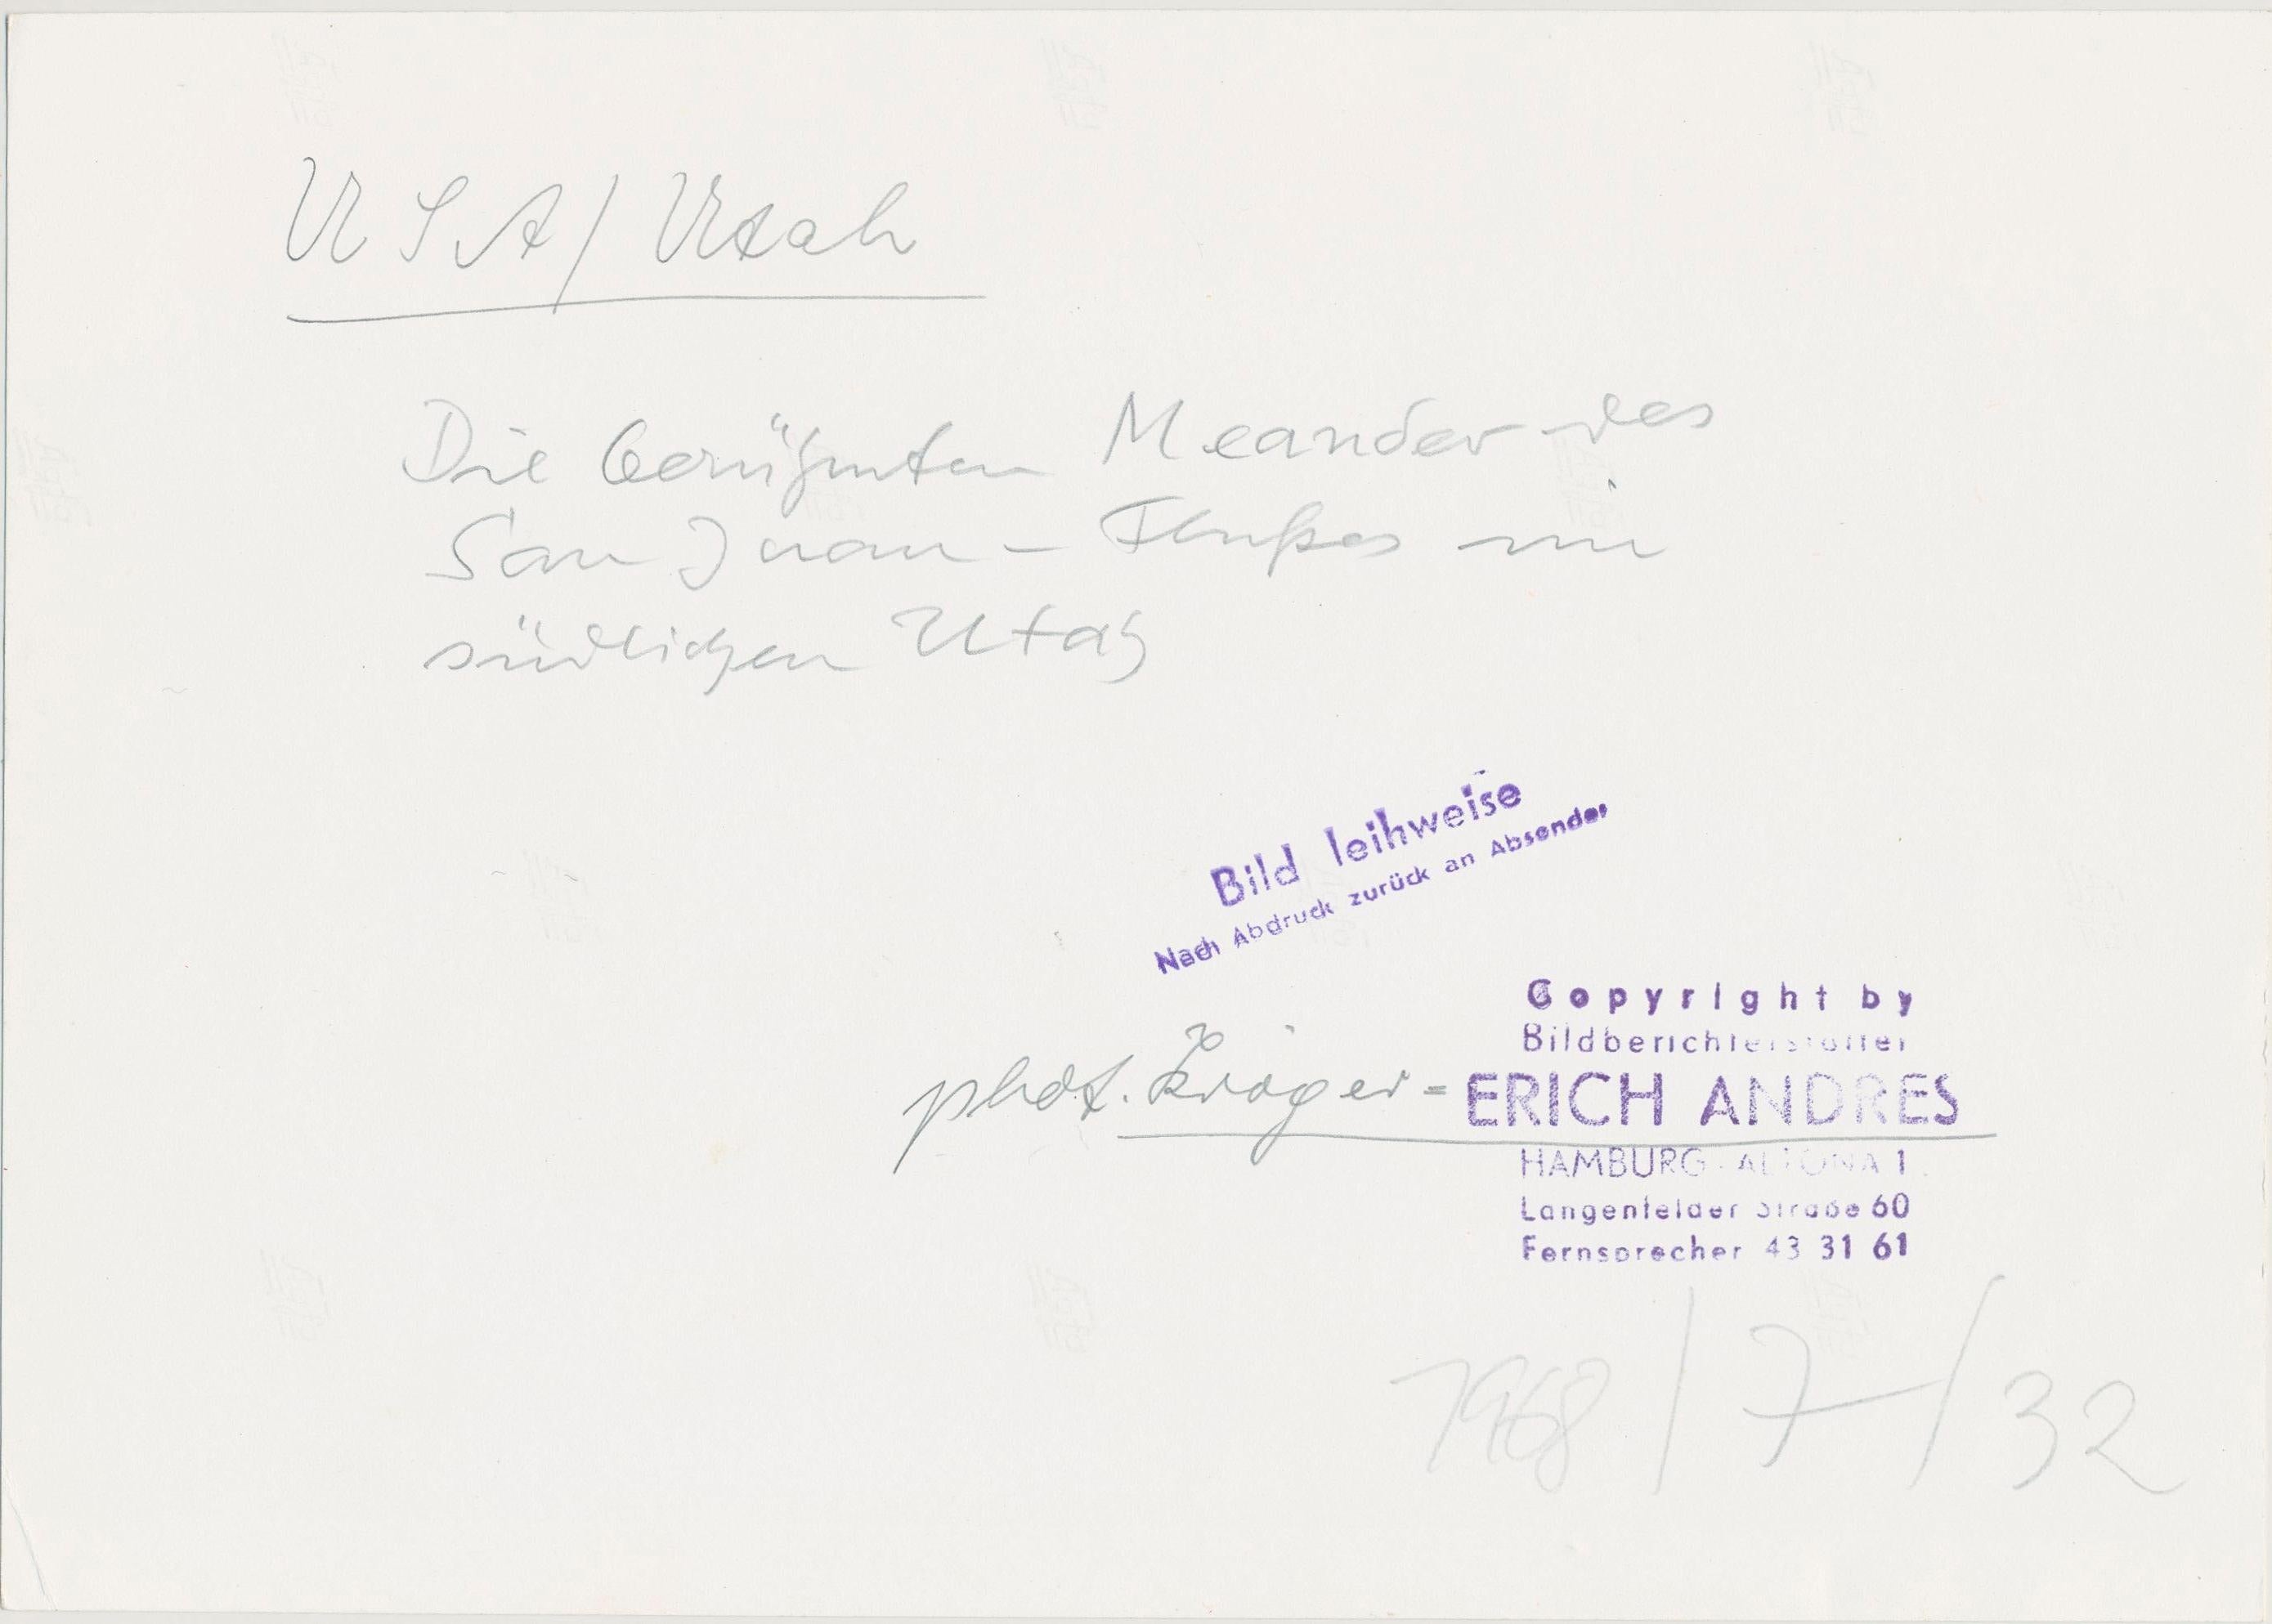 USA/Utah
Die berühmten Meander des
San Juan-Flußes im
südlichen Utah
Bild leihweise
Nach Abdruck zurück an Absender
Copyright by
Bildberichterstatter
phot. Kröger = ERICH ANDRES
HAMBURG-ALTONA 1
Langenfelder Straße 60
Fernsprecher 43 31 61
1968/7/32